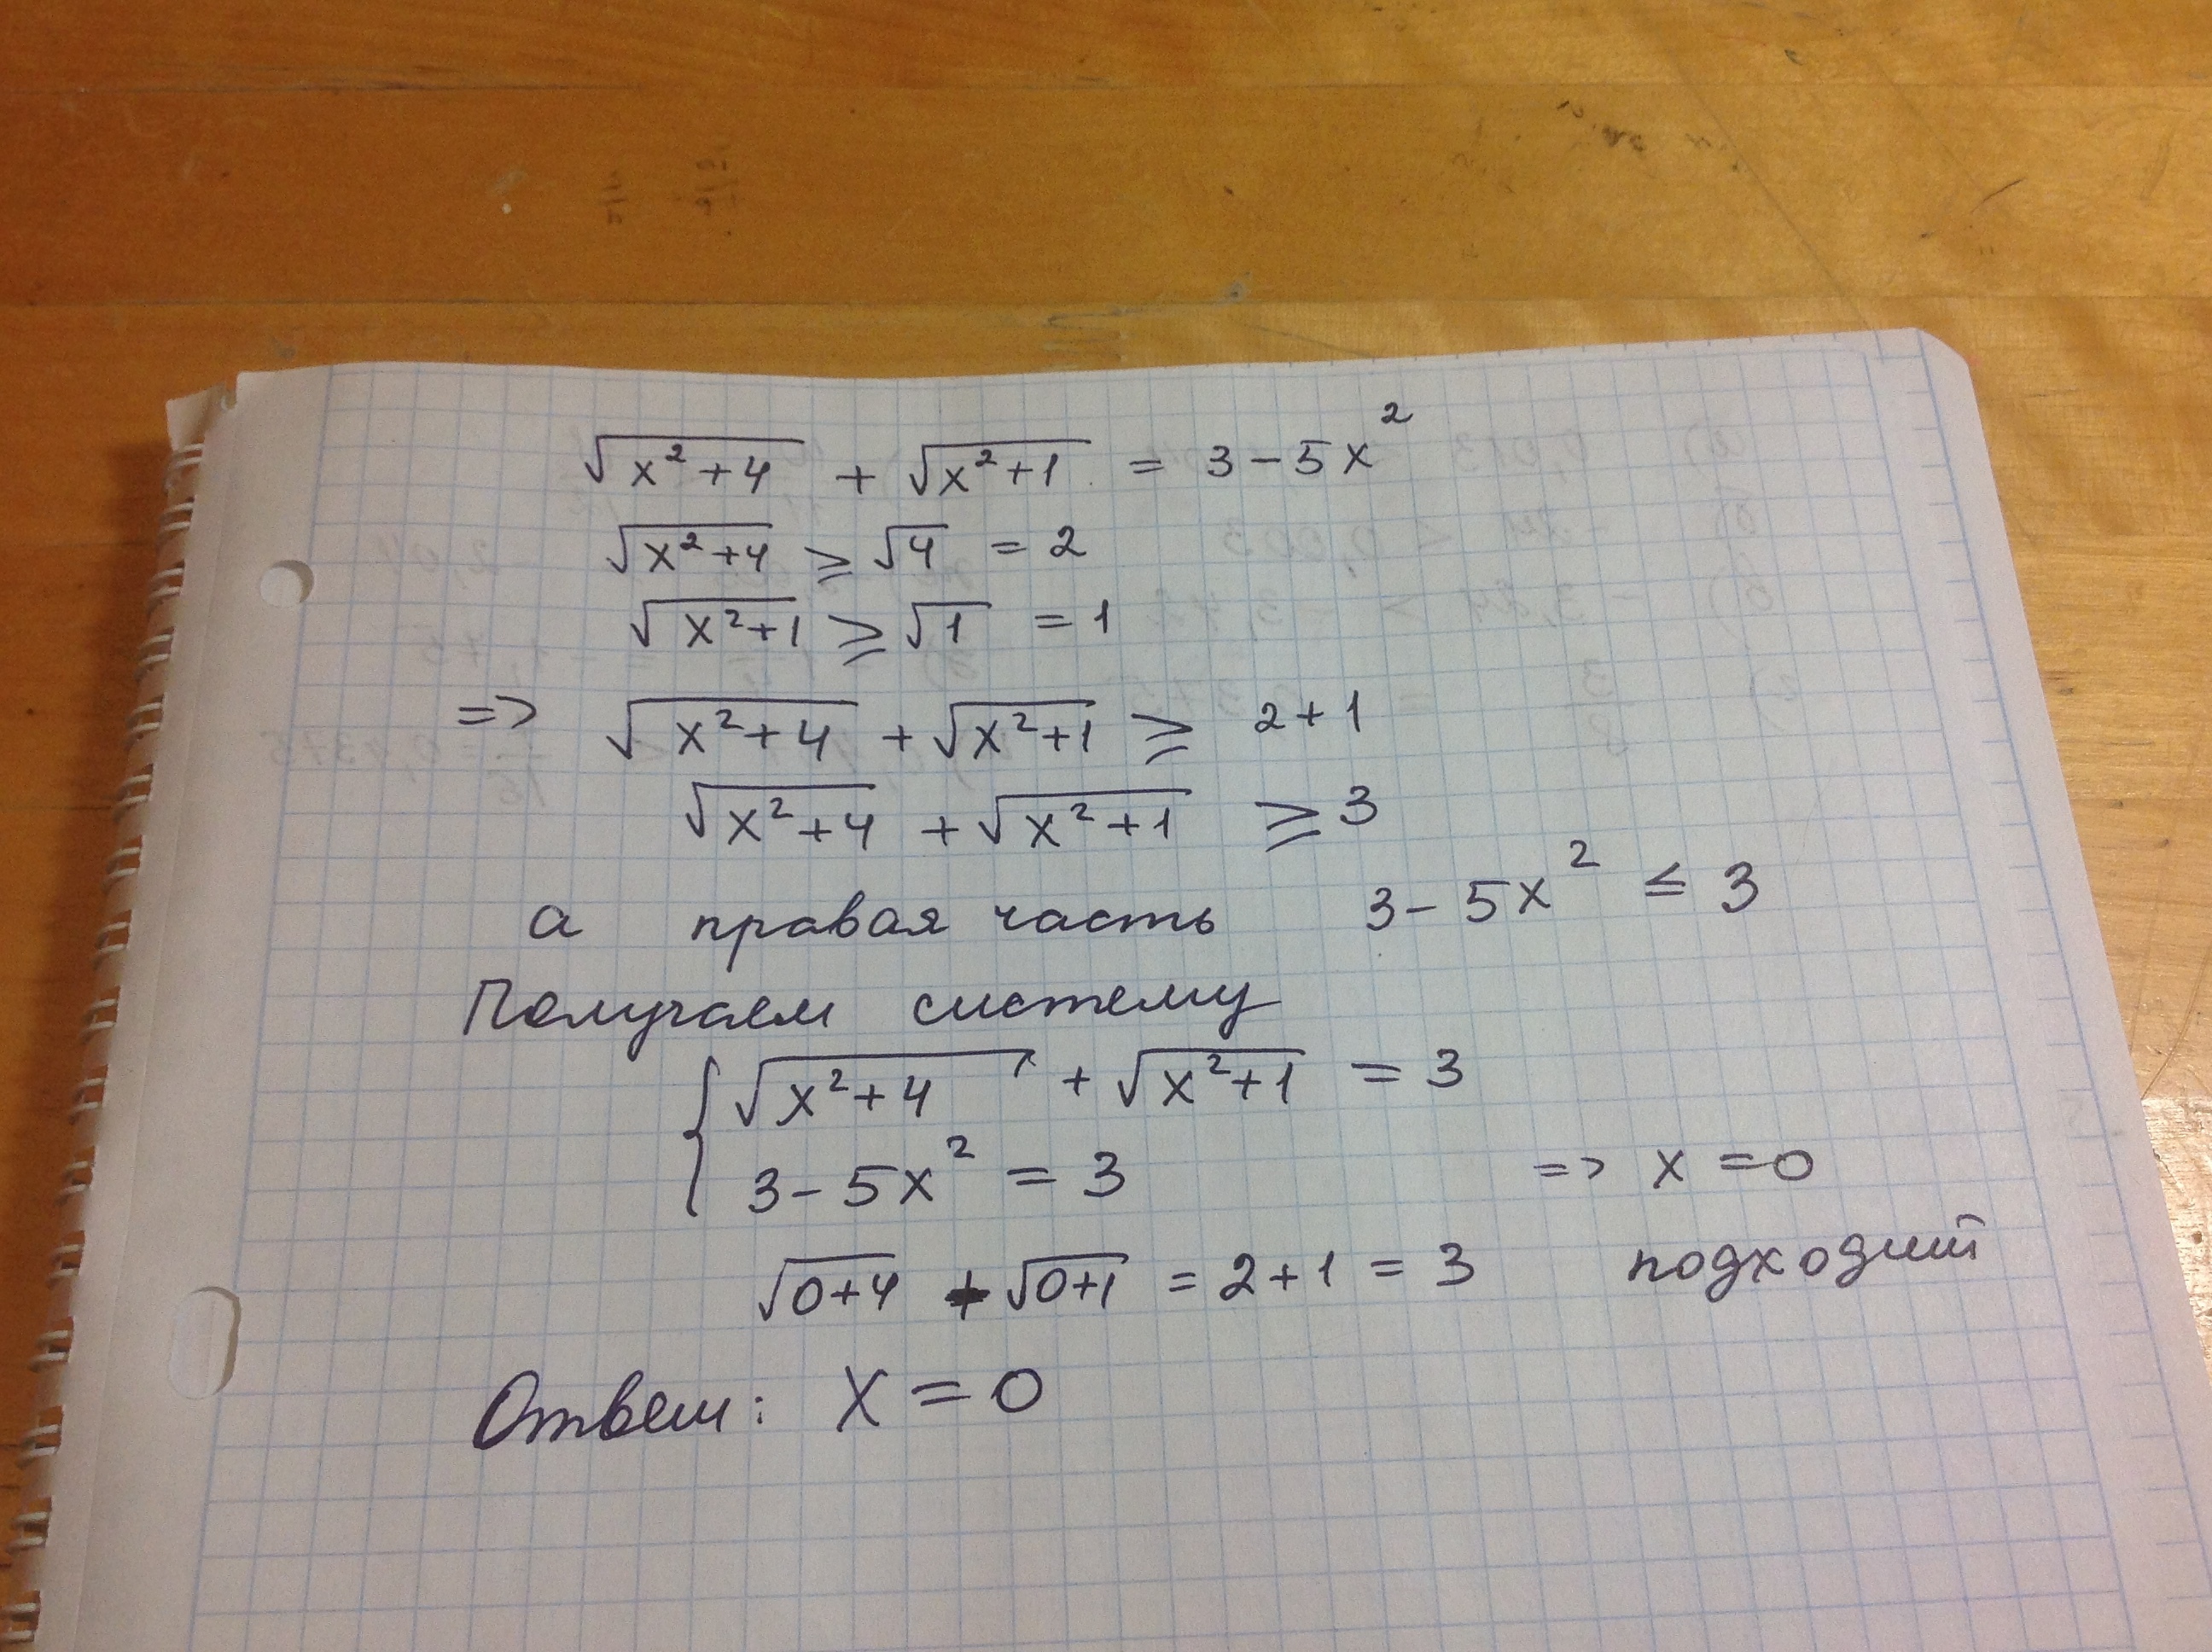 √(x²+4) + √(x²+1) = 3-5x²
√(x²+4) ⩾ √4 = 2
√(x²+1) ⩾ √1 = 1
=> √(x²+4) + √(x²+1) ⩾ 2+1
√(x²+4) + √(x²+1) ⩾ 3
а правая часть 3-5x² ≤ 3
Получаем систему
{ √(x²+4) + √(x²+1) = 3
3-5x² = 3 => x=0
√(0+4) + √(0+1) = 2+1 = 3 подходит
Ответ: x=0